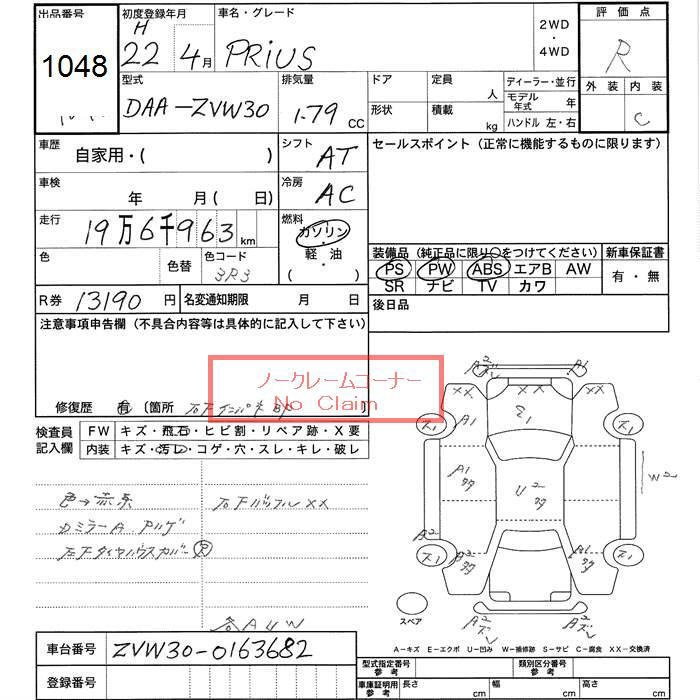 出品番号
1048
初度登録年月
H 22 4月
車名・グレード
PRIUS
2WD
・
4WD
評価点
R
外装 内装
C
型式
DAA-ZVW30
排気量
1.79 CC
ドア
定員
人
形状
積載
kg
ディーラー・並行
モデル年式 年
ハンドル 左・右
車歴
自家用・( )
シフト
AT
セールスポイント(正常に機能するものに限ります)
車検
年 月( 日)
冷房
AC
走行
19万6千963km
燃料
ガソリン
・
軽油
( )
色
色替
色コード
3R3
装備品(純正品に限り○をつけてください)
新車保証書
PS PW ABS エアB AW
SR ナビ TV カワ
有・無
R券 13190円
名変通知期限 月 日
後日品
注意事項申告欄(不具合内容等は具体的に記入して下さい)
ノークレームコーナー
No Claim
修復歴 有 〔箇所
検査員
記入欄
FW キズ・飛石・ヒビ割・リペア跡・X要
内装 キズ・汚レ・コゲ・穴・スレ・キレ・破レ
色→赤系
XX
ミラーA
右F R
各A4W
A2
A1
XX XX
ス1
A1
ス1
Z1
A1
U2
W2
A2
ス1
ス1
スペア
A-キズ E-エクボ U-凹み W-補修跡 S-サビ C-腐食 XX-交換済
車台番号 ZVW30-0163682
登録番号
型式指定番号
参考
類別区分番号
参考
車庫証明用
参考
長さ cm
幅 cm
高さ cm